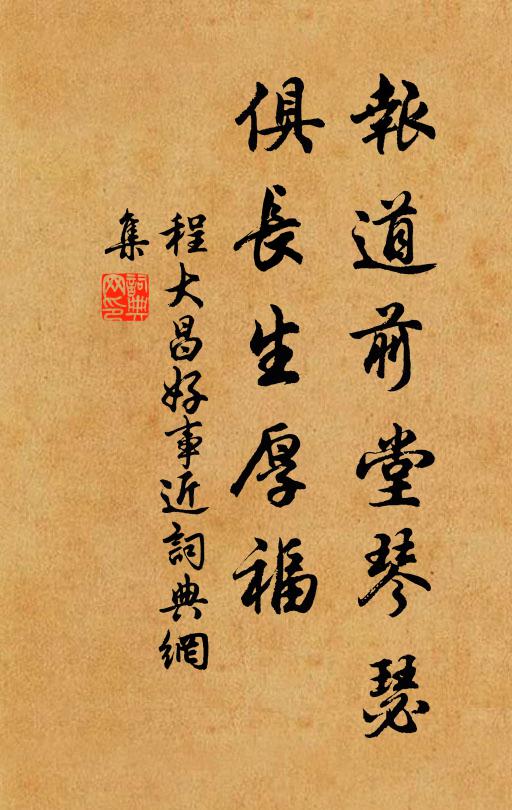 報道前堂琴瑟
俱長生厚福
程大昌好事近詞典網
集
詞典
網印